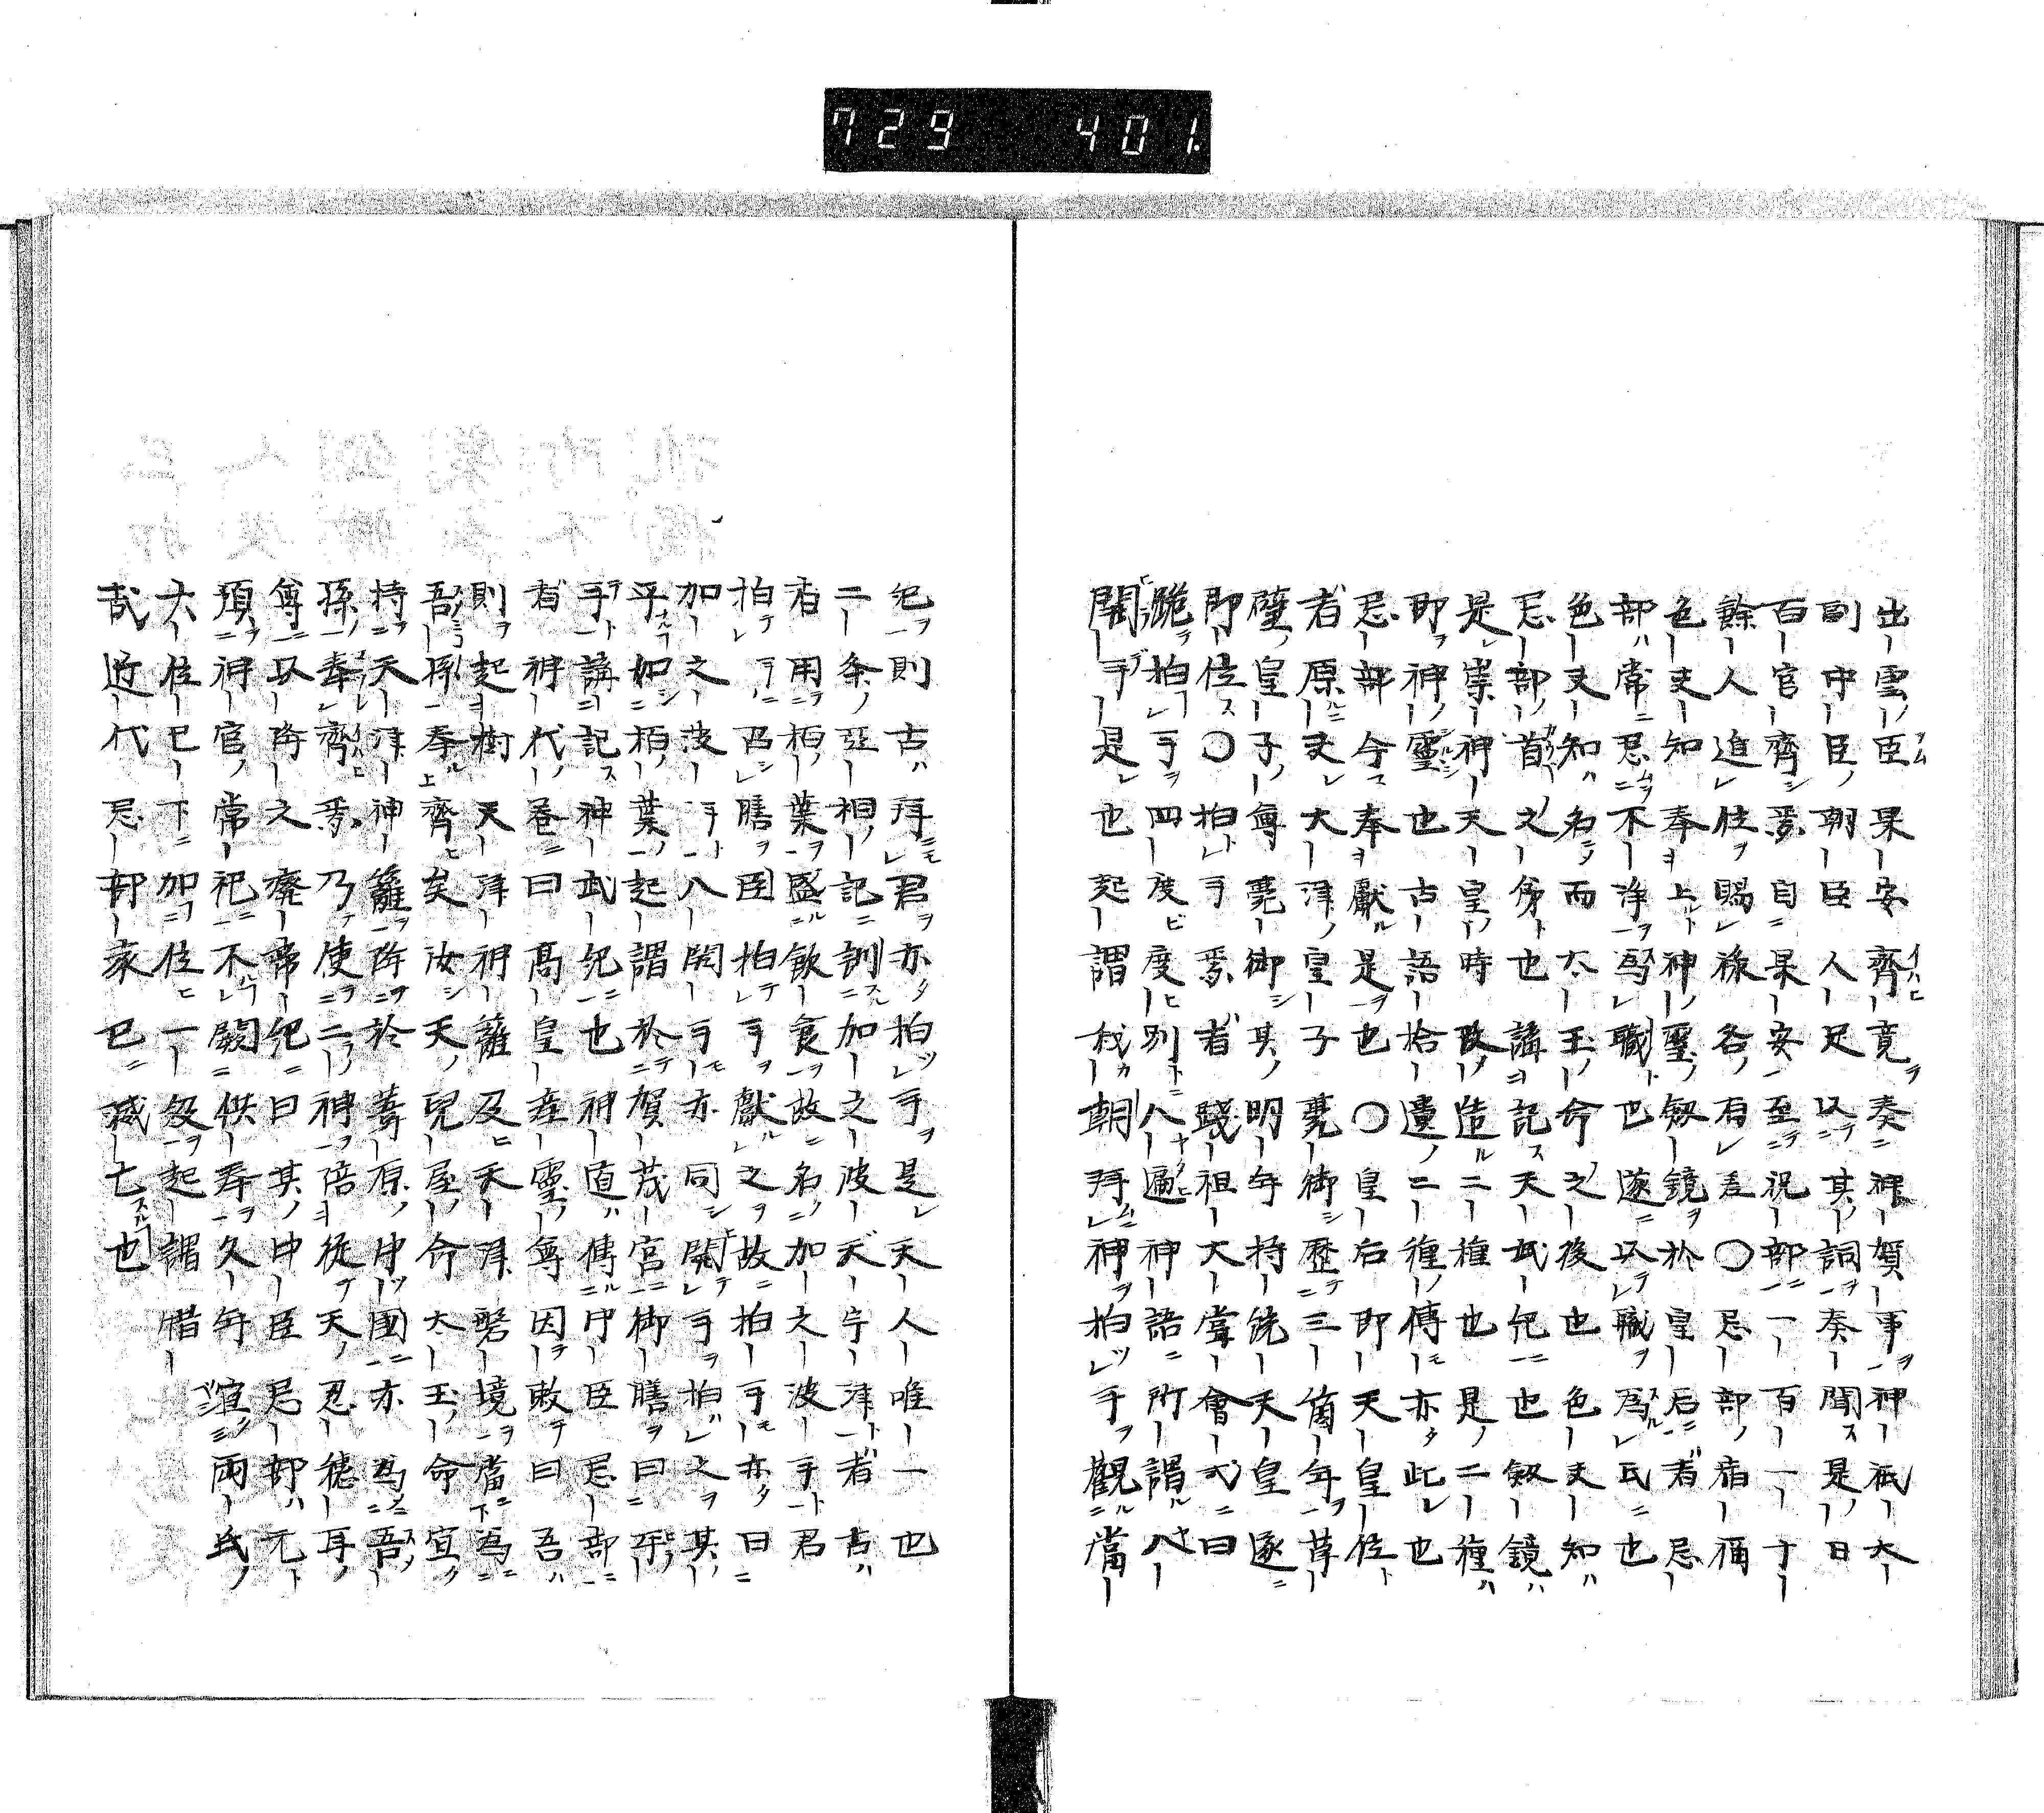 出雲臣果安齊竟奏神賀事神祇大
副中臣朝臣人足以其詞奏聞是日
百官齊焉自果安至祝部一百一十
餘人進位賜祿各有差〇忌部宿祢
色夫知奉上神璽釼鏡於皇后者忌
部常忌不浄爲職也遂以職爲氏也
色夫知名而太玉命之後也色夫知
忌部首之弟也講記天武紀也釼鏡
是崇神天皇時改造二種也是二種
即神靈也古語拾遺二種傳亦此也
忌部今奉獻是也〇皇后即天皇位
者原夫大津皇子薨御歷三箇年草
壁皇子尊薨御其明年持統天皇遂
即位〇拍手焉者踐祖大嘗會式曰
跪拍手四度度別八遍神語所謂八
開手是也起謂我朝拜神拍手觀當
紀則古拜君亦拍手是天人唯一也
二条亞相記訓加之波天宇津者古
者用柏葉盛飲食故名加之波手君
拍手召膳固拍手獻之故拍手亦曰
加之波手八開手亦同開手拍之其
平如柏葉起謂於賀茂宮御膳曰乎
手講記神武紀也神道傳中臣忌部
者神代卷曰高皇産靈尊因敕曰吾
則起樹天津神籬及天津磐境當爲
吾孫奉齊矣汝天兒屋命太玉命宜
持天津神籬降於葦原中國亦爲吾
孫奉齊焉乃使二神陪從天忍穗耳
尊以降之 紀曰其中臣忌部元
預神官常祀不闕供奉久年宜兩氏
六位已下加位一級起謂惜
哉近代忌部家已滅亡也